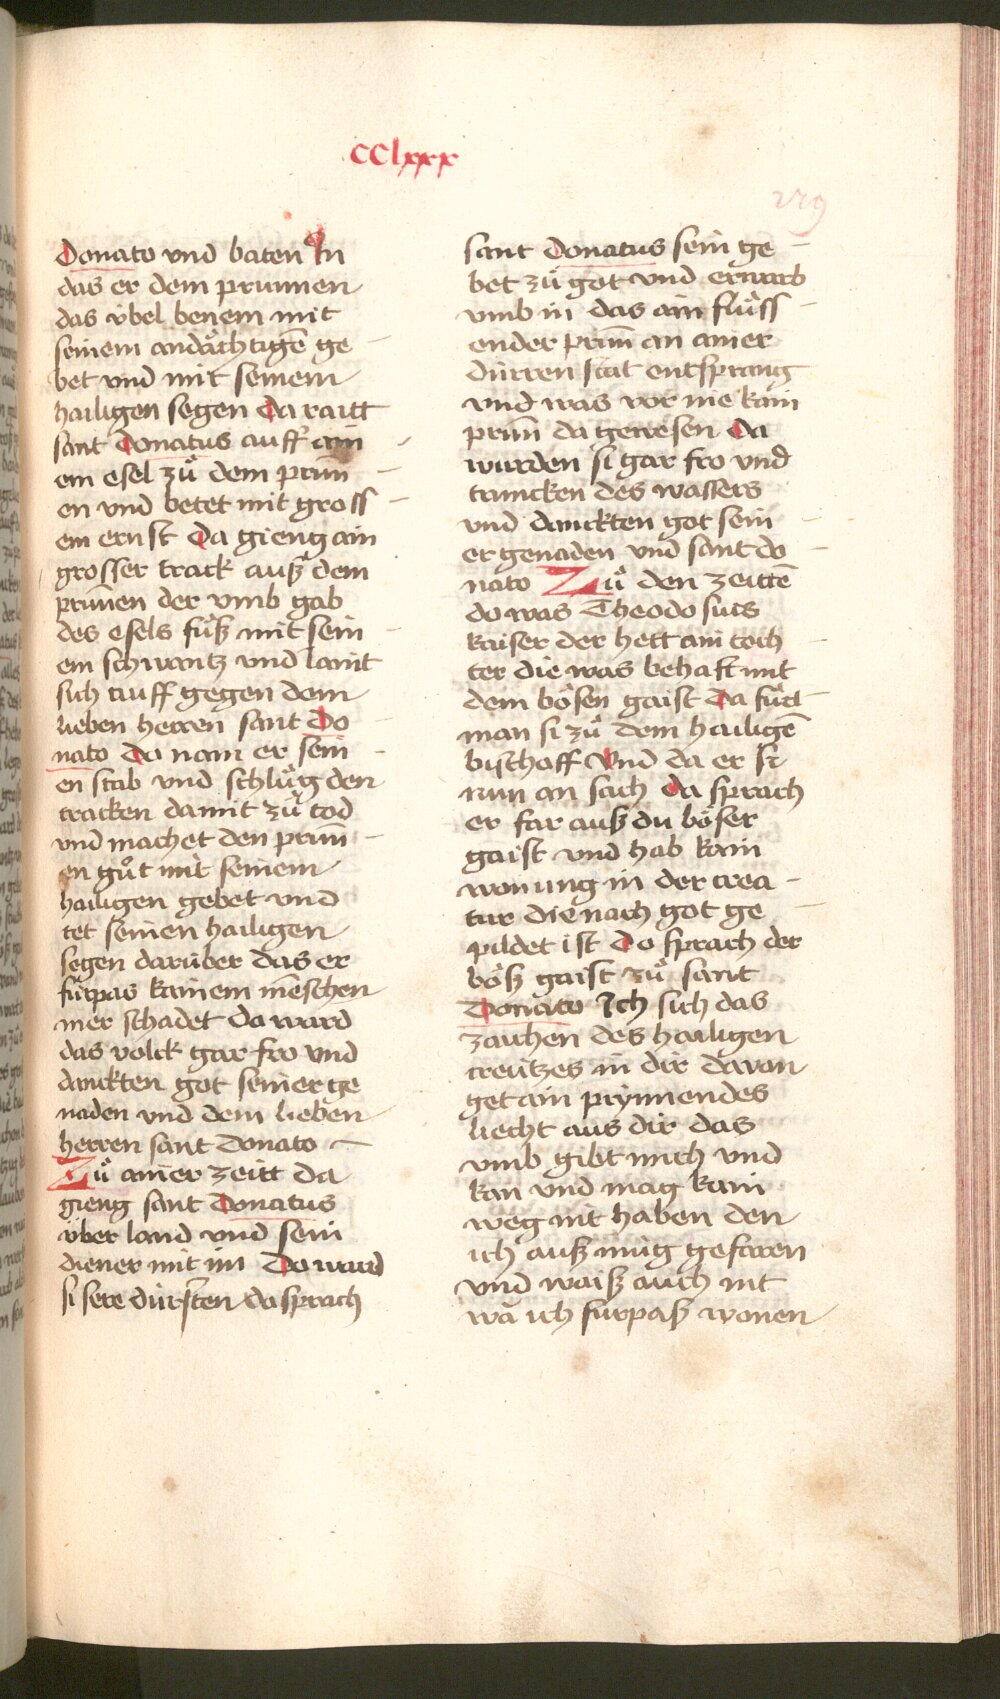 CClxxx
279
Donato vnd baten In
das er dem prunnen
das vbel benem mit
seinem andächtigē ge
bet vnd mit seinem
hailigen segen Da raitt
sant Donatus auff ain
em esel zů dem prūn
en vnd betet mit gross
em ernst Da gieng ain
grosser track auß dem
prūnen der vmb gab
des esels fůß mit sein
em schwantz vnd laint
sich auff gegen dem
lieben herren sant Do
nato Do nam er sein
en stab vnd schlůg den
tracken damit zů tod
vnd machet den prun
en gůt mit seinem
hailigen gebet vnd
tet seinen hailigen
segen darüber das er
fürpas kainem mēschen
mer schadet Da ward
das volck gar fro vnd
danckten got seiner ge
naden vnd dem lieben
herren sant Donato
Zů ainer zeitt da
gieng sant Donatus
über land vnd sein
diener mit im Da ward
si sere dürsten da sprach
sant Donatus sein ge
bet zů got vnd erwarb
vmb in das ain flüss
ender prūn an ainer
dürren stat entsprang
vnd was vor nie kain
prūn da gewesen Da
wurden si gar fro vnd
truncken des wassers
vnd danckten got sein
er genaden vnd sant do
nato Zů den zeittē
do was Theodosius
kaiser der hett ain toch
ter die was behaft mit
dem bösen gaist Da fůrt
man si zů dem hailigē
bischoff Vnd da er si
nun an sach Da sprach
er far auß du böser
gaist vnd hab kain
wonung in der crea
tur die nach got ge
pildet ist Do sprach der
böß gaist zů sant
Donato Ich sich das
zaichen des hailigen
creützes in dir davon
get ain prynnendes
liecht aus dir das
vmb gibt mich vnd
kan vnd mag kain
weg nit haben den
ich auß müg gefaren
vnd waiß auch nit
wa ich fürpaß wonen